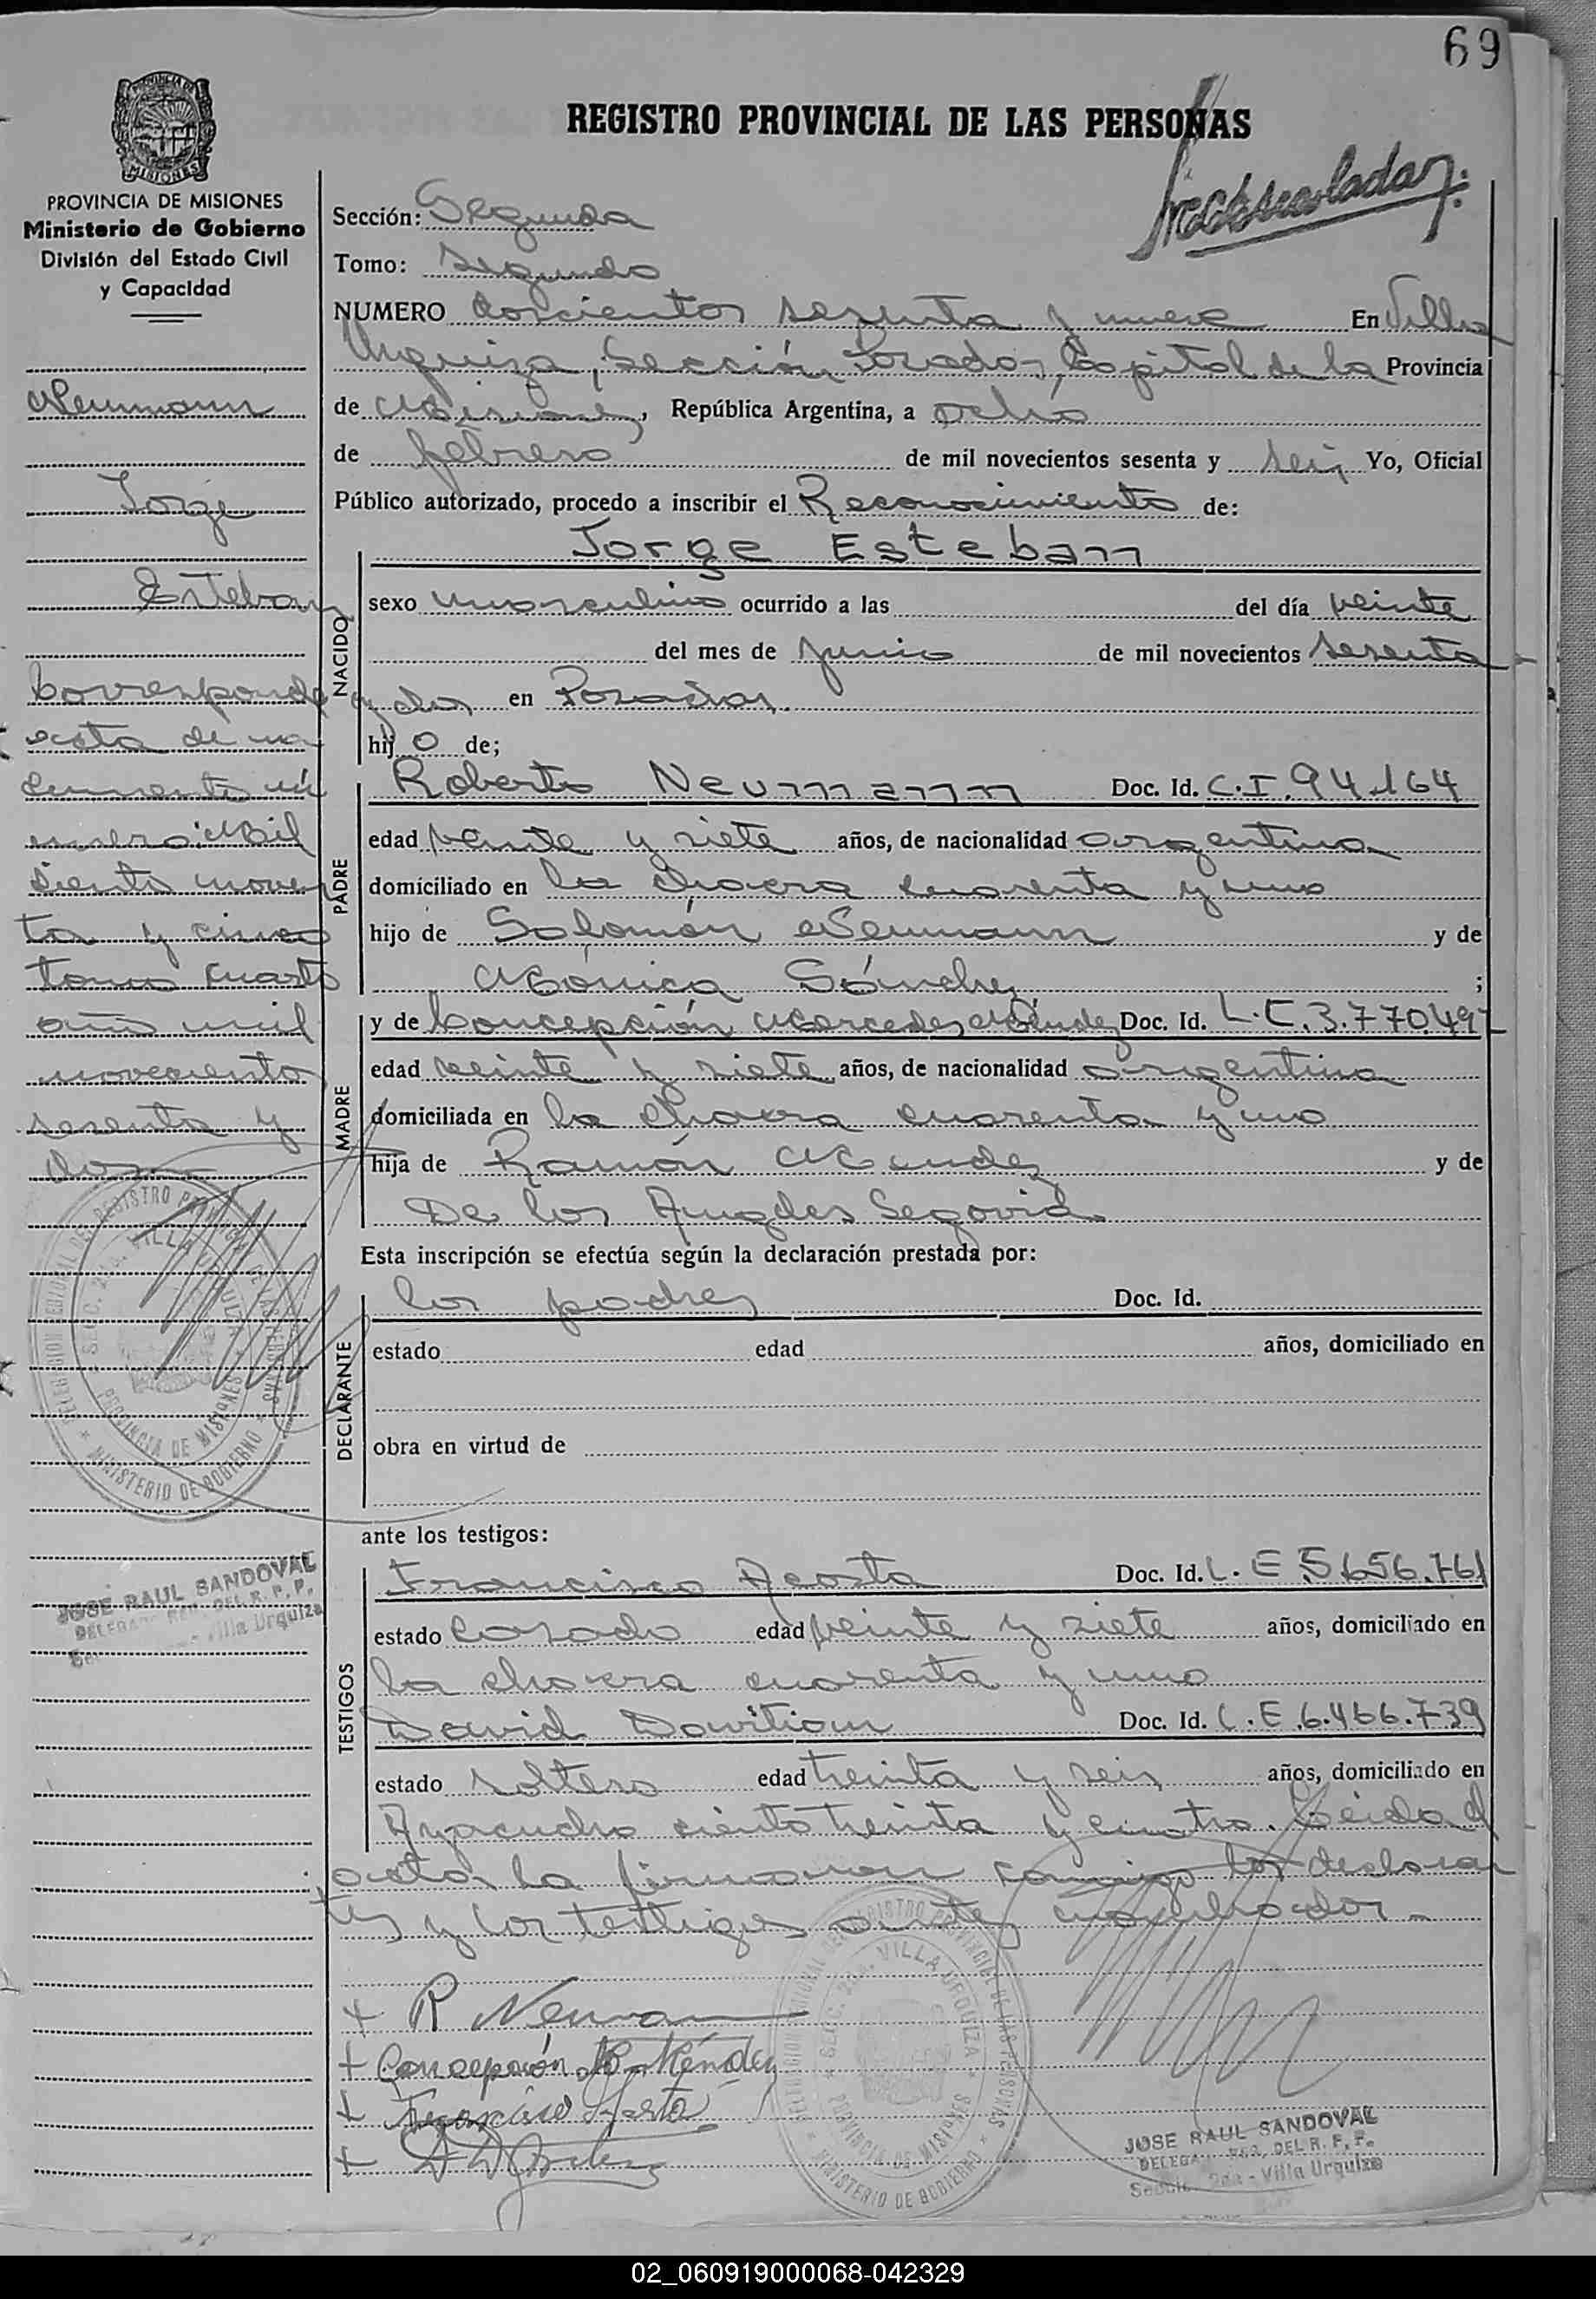 69
REGISTRO PROVINCIAL DE LAS PERSONAS
PROVINCIA DE MISIONES
MISIONES
PROVINCIA DE MISIONES
Ministerio de Gobierno
División del Estado Civil
y Capacidad
Neumann
Jorge
Esteban
Corresponde
acta de na
cimiento nú
mero: Mil
siento noven
ta y cinco
tomo cuarto
año mil
noveciento
sesenta y
dos
Sección: Segunda
Tomo: Segundo
NUMERO doscientos sesenta y nueve En Villa
Urquiza, Sección Posadas, Capital de la Provincia
de Misiones, República Argentina, a ocho
de febrero de mil novecientos sesenta y seis Yo, Oficial
Público autorizado, procedo a inscribir el Reconocimiento de:
Jorge Esteban
NACIDO
sexo masculino ocurrido a las del día veinte
del mes de junio de mil novecientos sesenta
y dos en Posadas.
hij o de;
PADRE
Roberto Neumann Doc. Id. C.I. 94.164
edad veinte y siete años, de nacionalidad argentina
domiciliado en la chacra cuarenta y uno
hijo de Solomón Neumann y de
Mónica Sánchez ;
MADRE
y de Concepción Mercedes Méndez Doc. Id. L.C. 3.770.497
edad veinte y siete años, de nacionalidad argentina
domiciliada en la chacra cuarenta y uno
hija de Ramón Mendez y de
De los Angeles Segovia
Esta inscripción se efectúa según la declaración prestada por:
DECLARANTE
los padres Doc. Id.
estado edad años, domiciliado en
obra en virtud de
ante los testigos:
TESTIGOS
Francisco Acosta Doc. Id. L.E 5.656.761
estado Casado edad veinte y siete años, domiciliado en
la chacra cuarenta y uno
David Davitian Doc. Id. L.E. 6.466.739
estado soltero edad treinta y seis años, domiciliado en
Ayacucho ciento treinta y cuatro. Leida el
acta, la firmaron conmigo los declaran
tes y los testigos
R Neuman
Concepción M. Méndez
Francisco Acosta
DELEGACION REGIONAL DEL REGISTRO PROVINCIAL DE LAS PERSONAS
SECC. 2da. VILLA URQUIZA
PROVINCIA DE MISIONES
MINISTERIO DE GOBIERNO
JOSE RAUL SANDOVAL
DELEGA REG. DEL R. P. P.
Villa Urquiza
DELEGACION REGIONAL DEL REGISTRO PROVINCIAL DE LAS PERSONAS
SECC. 2da. VILLA URQUIZA
PROVINCIA DE MISIONES
MINISTERIO DE GOBIERNO
JOSE RAUL SANDOVAL
DELEGA REG. DEL R. P. P.
Secció 2da - Villa Urquiza
02_060919000068-042329